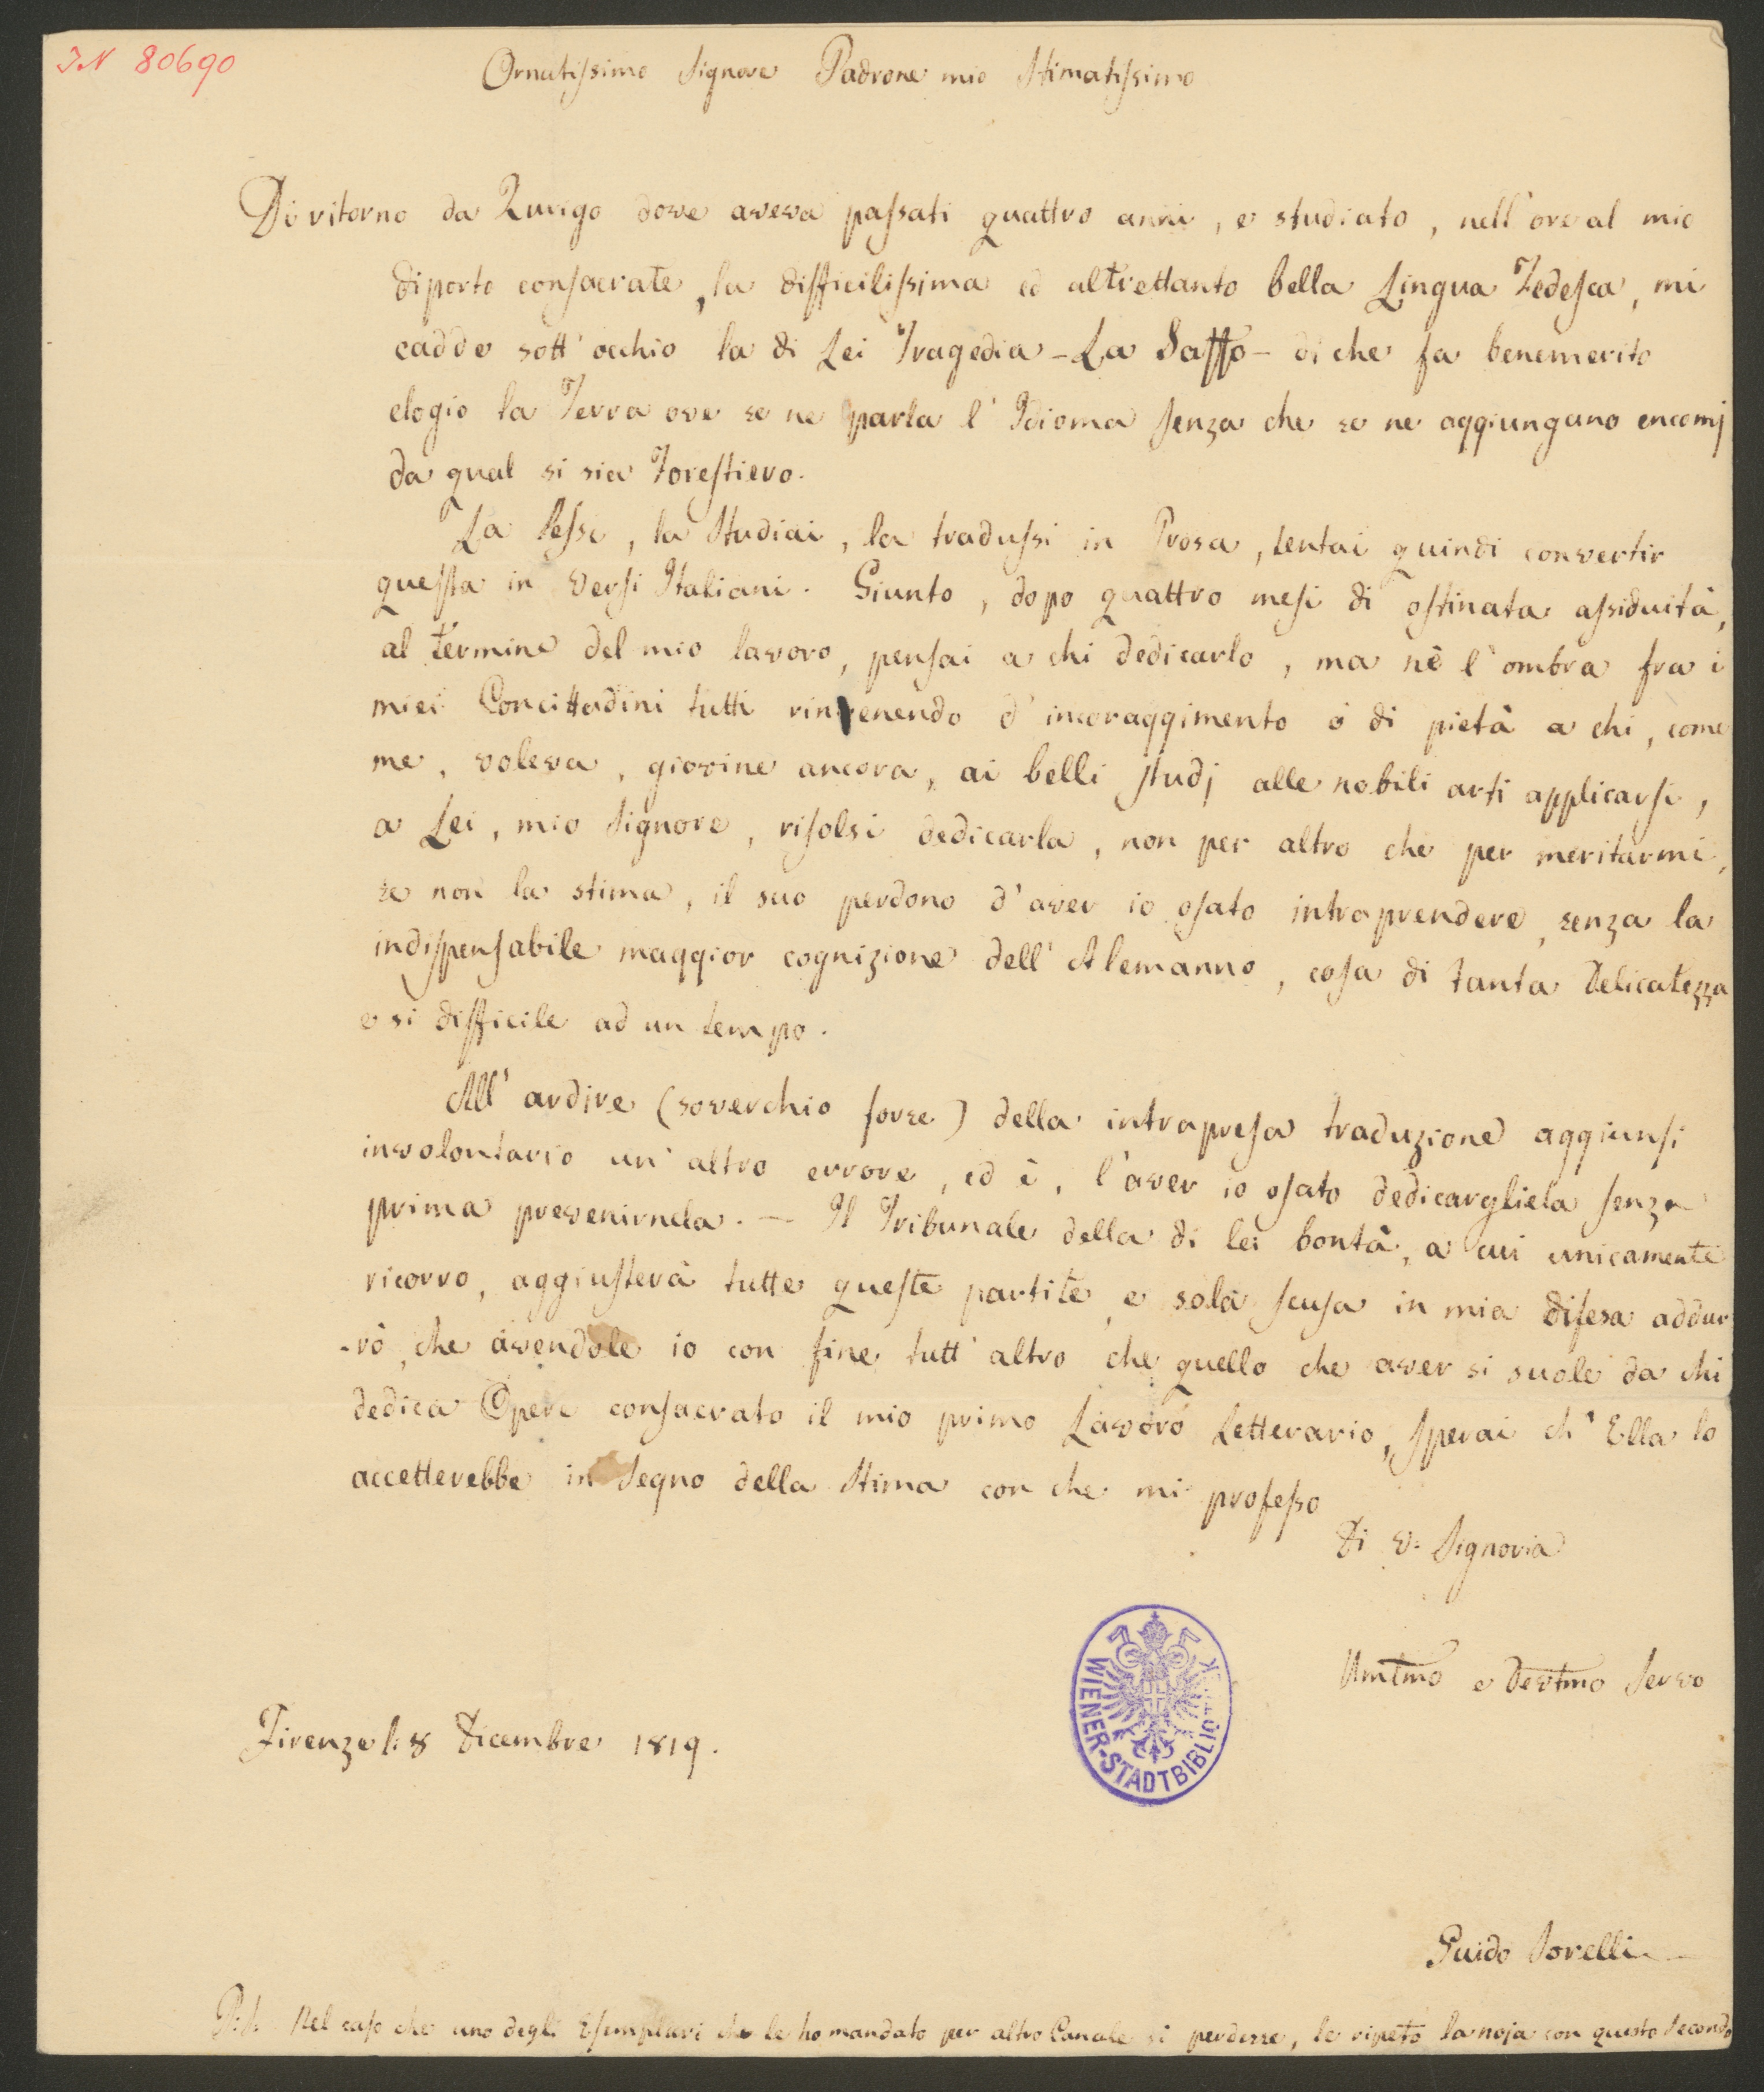 IN 80690
Ornatissimo Signore Padrone mio Stimatissimo
Di ritorno da Zurigo dove aveva passati quattro anni, e studiato, nell'ore al mio
diporto consacrate, la difficilissima ed altrettanto bella Lingua Tedesca, mi
cadde sott'occhio la di Lei Tragedia - La Saffo - di che fa benemerito
elogio la Terra ove se ne parla l'Idioma senza che se ne aggiungano encomj
da qual si sia Forestiero.
La lessi, la studiai, la tradussi in Prosa, tentai quindi convertir
questa in versi Italiani. Giunto, dopo quattro mesi di ostinata assiduità,
al termine del mio lavoro, pensai a chi dedicarlo, ma nè l'ombra fra i
miei Concittadini tutti rinvenendo d'incoraggimento o di pietà a chi, come
me, voleva, giovine ancora, ai belli studj alle nobili arti applicarsi,
a Lei, mio Signore, risolsi dedicarla, non per altro che per meritarmi,
se non la stima, il suo perdono d'aver io osato intraprendere, senza la
indispensabile maggior cognizione dell'Alemanno, cosa di tanta Delicatezza
e si difficile ad un tempo.
All'ardire (soverchio forse) della intrapresa traduzione aggiunsi
involontario un'altro errore, ed è, l'aver io osato dedicargliela senza
prima prevenirnela. — Il Tribunale della di lei bontà, a cui unicamente
ricorro, aggiusterà tutte queste partite, e sola scusa in mia difesa addur
-rò, che avendole io con fine tutt'altro che quello che aver si suole da chi
dedica Opere consacrato il mio primo Lavoro Letterario, sperai ch'Ella lo
accetterebbe in segno della stima con che mi professo
Di V. Signoria
Umtmo e Devtmo Servo
WIENER-STADTBIBLIOTHEK
Firenze l: 8 Dicembre 1819.
Guido Sorelli
P.S. Nel caso che uno degli Esemplari che le ho mandato per altro Canale si perdesse, le ripeto la noja con questo secondo